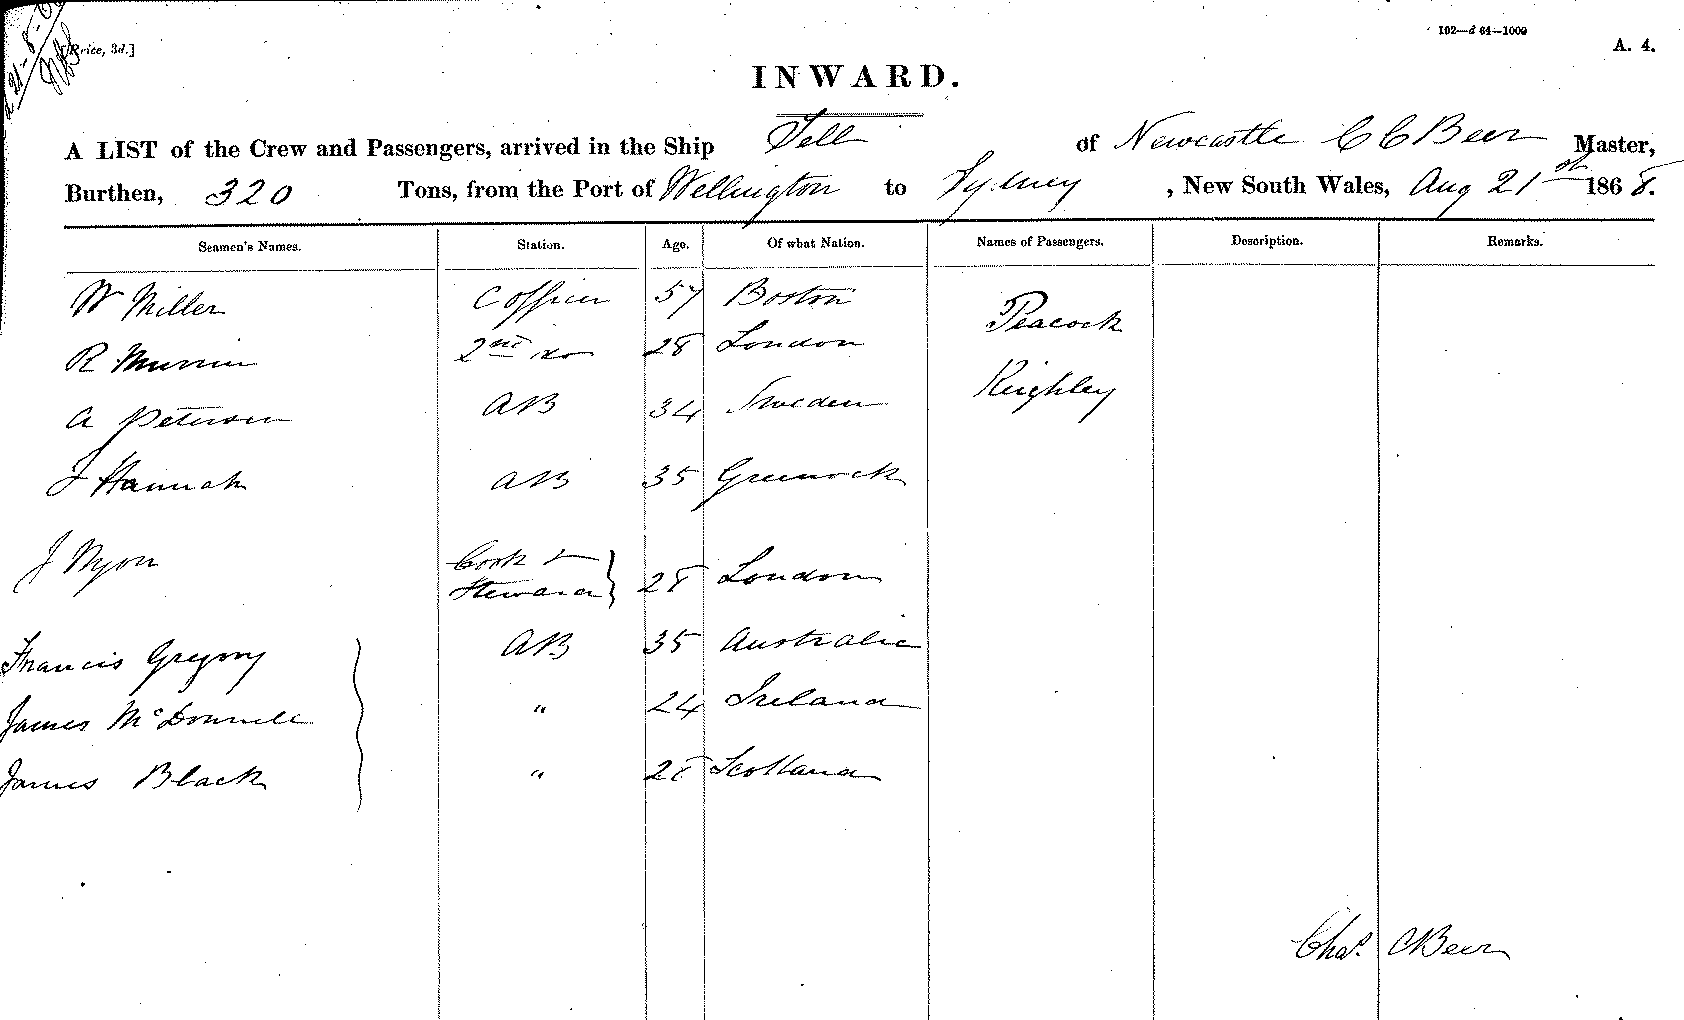 21-8-68
[Price, 3d.]
102—d 64—1000
A. 4.
INWARD.
A LIST of the Crew and Passengers, arrived in the Ship Tell of Newcastle C C Beer Master,
Burthen, 320 Tons, from the Port of Wellington to Sydney, New South Wales, Aug 21st 1868.
Seamen's Names. Station. Age. Of what Nation. Names of Passengers. Description. Remarks.
W Miller C officer 57 Boston
Peacock
R 2nd do 28 London
A Petersen AB 34 Sweden Keighley
J Hannah AB 35 Greenock
J Myon Cook &
Steward } 28 London
Francis Gregory AB 35 Australia
James McDonnell " 24 Ireland
James Black " 28 Scotland
Chas. C Beer